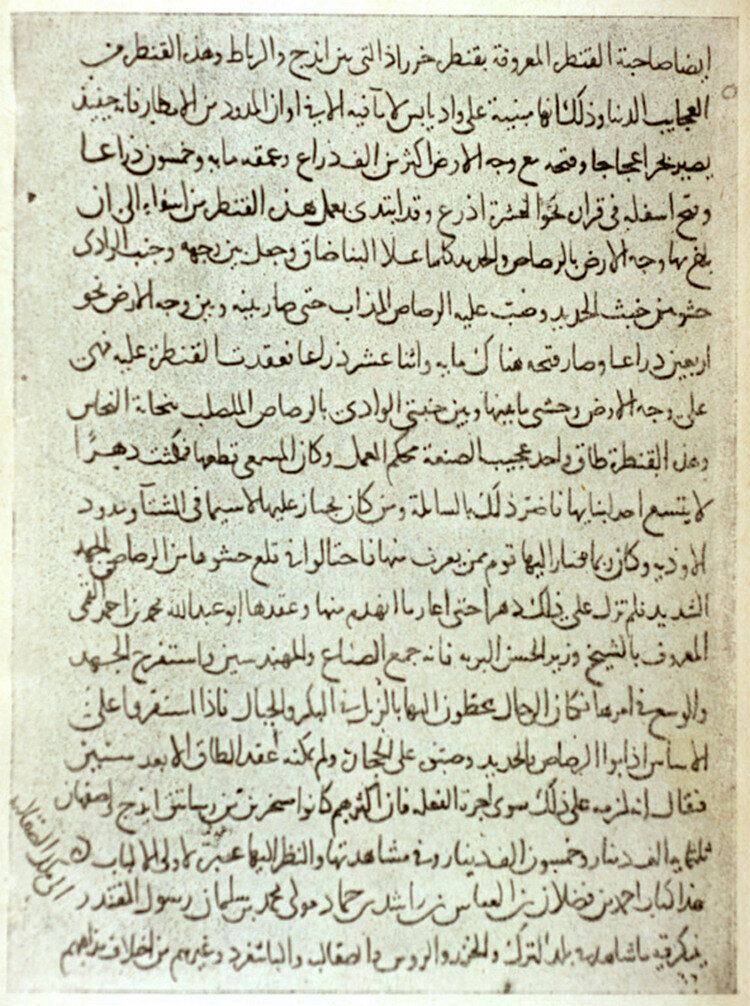 ايضا صاحبة القنطرة المعروفة بقنطرة خرراذ التى بين ايذج والرباط وهذه القنطرة من
العجايب الدنيا وذلك انها مبنية على واد يابس لا مآ فيه الا فى اوان المدود من الامطار فانه حينيذ
يصير بحرا عجاجا وفتحه مع وجه الارض اكثر من الف ذراع وعمقه مايه وخمسون ذراعا
وفتح اسفله فى قراره نحو العشرة اذرع وقد ابتدى بعمل هذه القنطرة من اسفله الى ان
بلغ بها وجه الارض بالرصاص والحديد كلما علا البنا ضاق وجعل بين وجهه وجنب الوادى
حشو من خبث الحديد وصب عليه الرصاص المذاب حتى صار بينه وبين وجه الارض نحو
اربعين ذراعا وصار فتحه هناك مايه واثنا عشر ذراعا فعقدت القنطرة عليه فهى
على وجه الارض وحشى ما بينها وبين جنبتى الوادى بالرصاص المصلب بنحاتة النحاس
وهذه القنطرة طاق واحد عجيب الصنعة محكم العمل وكان المسمعى قطعها فمكثت دهرًا
لا يتسع احد لبنايها فاضر ذلك بالسابلة ومن كان يجتاز عليها لا سيما فى الشتآ ومدود
الاوديه وكان ربما صار اليها قوم ممن يعرف منها فاحتالوا فى قلع حشوها من الرصاص بالجهد
الشديد فلم تزل على ذلك دهرا حتى اعار ما انهدم منها وعقدها ابو عبد الله محمد بن احمد القمى
المعروف بالشيخ وزير الحسن البويه فانه جمع الصناع والمهندسين واستفرغ الجهد
والوسع فى امرها فكان الرجال يحطون اليها بالزبل فى البكر والحبال فاذا استقروا على
الاساس اذابوا الرصاص والحديد وصبوه على الحجارة ولم يمكنه عقد الطاق الا بعد سنتين
فيقال انه لزمه على ذلك سوى اجرة الفعله فان اكثرهم كانوا مسخرين من رساتيق ايذج واصفهان
ثلثمايه الف دينار وخمسون الف دينار وفى مشاهدتها والنظر اليها عبرة لاولى الالباب
هذا كتاب احمد بن فضلان بن العباس بن راشد بن حماد مولى محمد بن سلمان رسول المقتدر
الى ملك الصقالبة
يذكر فيه ما شاهد فى بلد الترك والخزر والروس والصقالبه والباشغرد وغيرهم من اختلاف مذاهبهم